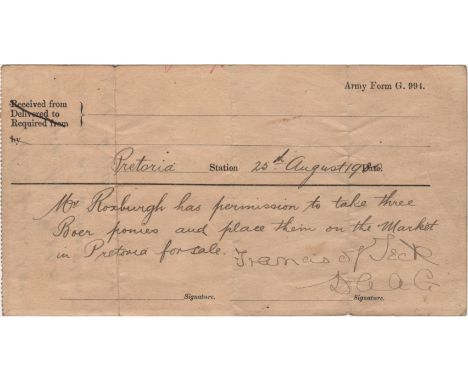 Army Form G. 994.
Received from
Delivered to
Required from
by
Pretoria Station 20th August 1900 Date.
Mr Roxburgh has permission to take three
Boer ponies and place them on the Market
in Pretoria for sale. Francis of Teck
D A A G
Signature. Signature.